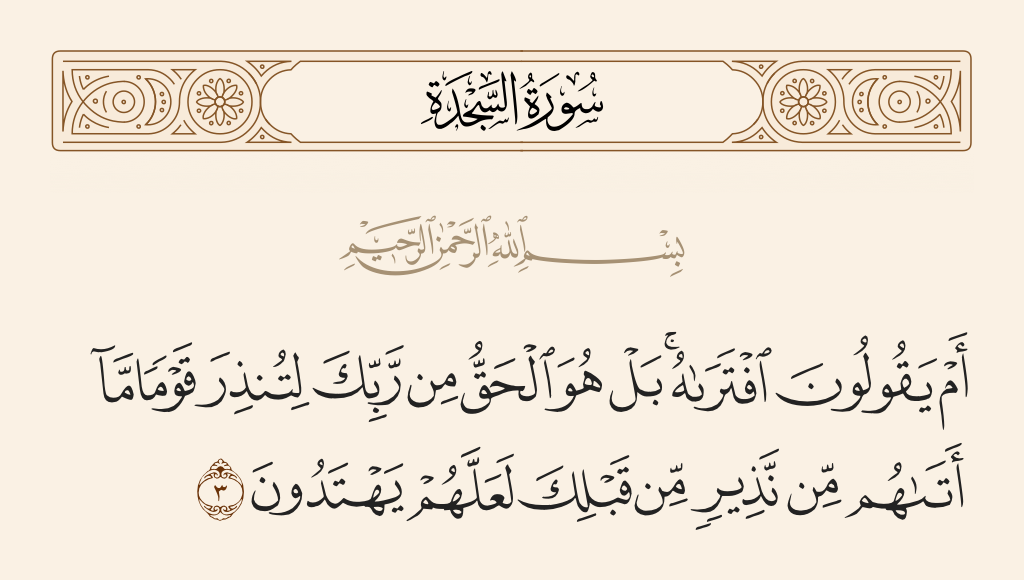 سُورَةُ السَّجْدَةِ
بِسْمِ ٱللَّهِ ٱلرَّحْمَٰنِ ٱلرَّحِيمِ
أَمْ يَقُولُونَ ٱفْتَرَىٰهُ ۚ بَلْ هُوَ ٱلْحَقُّ مِن رَّبِّكَ لِتُنذِرَ قَوْمًا مَّآ
أَتَىٰهُم مِّن نَّذِيرٍ مِّن قَبْلِكَ لَعَلَّهُمْ يَهْتَدُونَ ٣